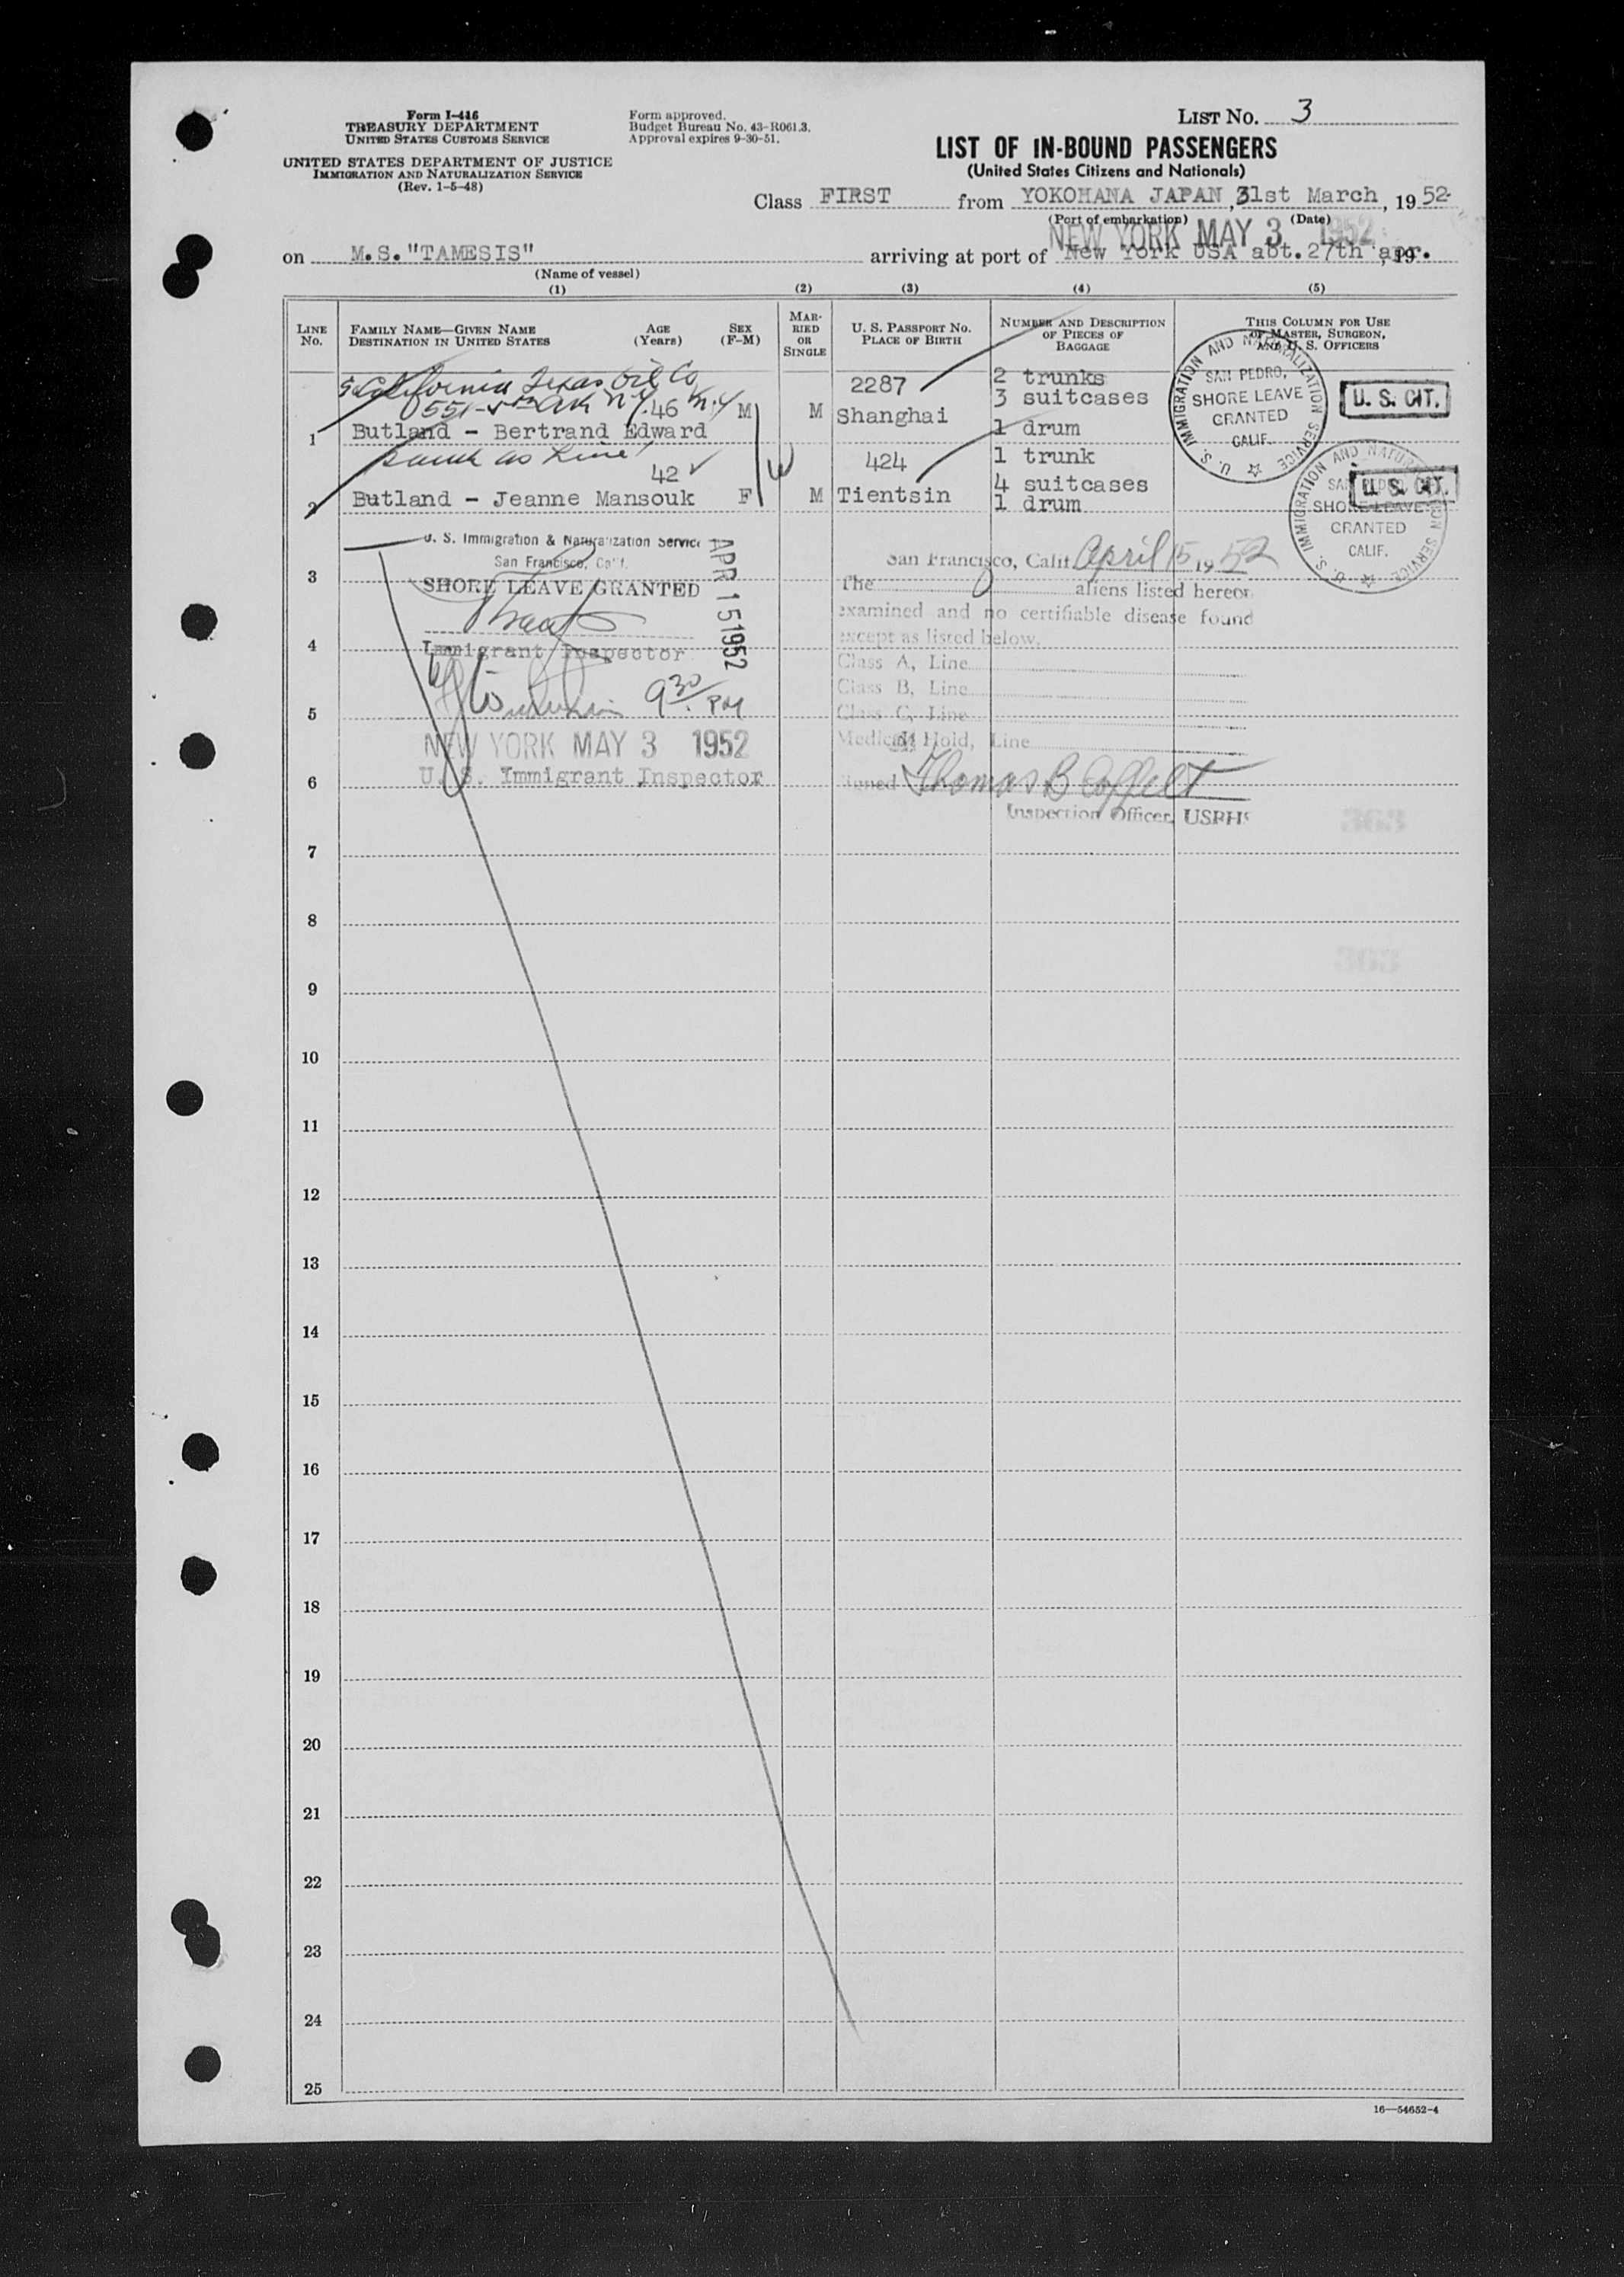 Form I-416
TREASURY DEPARTMENT
UNITED STATES CUSTOMS SERVICE
UNITED STATES DEPARTMENT OF JUSTICE
IMMIGRATION AND NATURALIZATION SERVICE
(Rev. 1-5-48)
Form approved.
Budget Bureau No. 43-R061.3.
Approval expires 9-30-51.
LIST NO. 3
LIST OF IN-BOUND PASSENGERS
(United States Citizens and Nationals)
Class FIRST from YOKOHANA JAPAN, 31st March, 1952
(Port of embarkation) (Date)
NEW YORK MAY 3 1952
on M.S. "TAMESIS" arriving at port of New York USA abt. 27th apr. , 19
(Name of vessel)
(1) (2) (3) (4) (5)
LINE NO.
FAMILY NAME—GIVEN NAME
DESTINATION IN UNITED STATES
AGE (Years)
SEX (F-M)
MARRIED OR SINGLE
U. S. PASSPORT NO.
PLACE OF BIRTH
NUMBER AND DESCRIPTION OF PIECES OF BAGGAGE
THIS COLUMN FOR USE OF MASTER, SURGEON, AND U. S. OFFICERS
California Texas Oil Co
551-5th Ave N.Y. N.Y
1 Butland - Bertrand Edward 46 M M
2287
Shanghai
2 trunks
3 suitcases
1 drum
U. S. IMMIGRATION AND NATURALIZATION SERVICE
SAN PEDRO,
SHORE LEAVE
GRANTED
CALIF.
U. S. CIT.
same as Line 1
2 Butland - Jeanne Mansouk 42 F M
W
424
Tientsin
1 trunk
4 suitcases
1 drum
U. S. IMMIGRATION AND NATURALIZATION SERVICE
SAN PEDRO,
SHORE LEAVE
GRANTED
CALIF.
U. S. CIT.
U. S. Immigration & Naturalization Service
San Francisco, Calif.
SHORE LEAVE GRANTED
Immigrant Inspector
APR 15 1952
9 30 PM
NEW YORK MAY 3 1952
U. S. Immigrant Inspector
San Francisco, Calif. April 15 1952
The aliens listed hereon
examined and no certifiable disease found
except as listed below.
Class A, Line
Class B, Line
Class C, Line
Medical Hold, Line
Signed Thomas B Coffelt
Inspection Officer, USPHS
363
363
3
4
5
6
7
8
9
10
11
12
13
14
15
16
17
18
19
20
21
22
23
24
25
16—54652-4